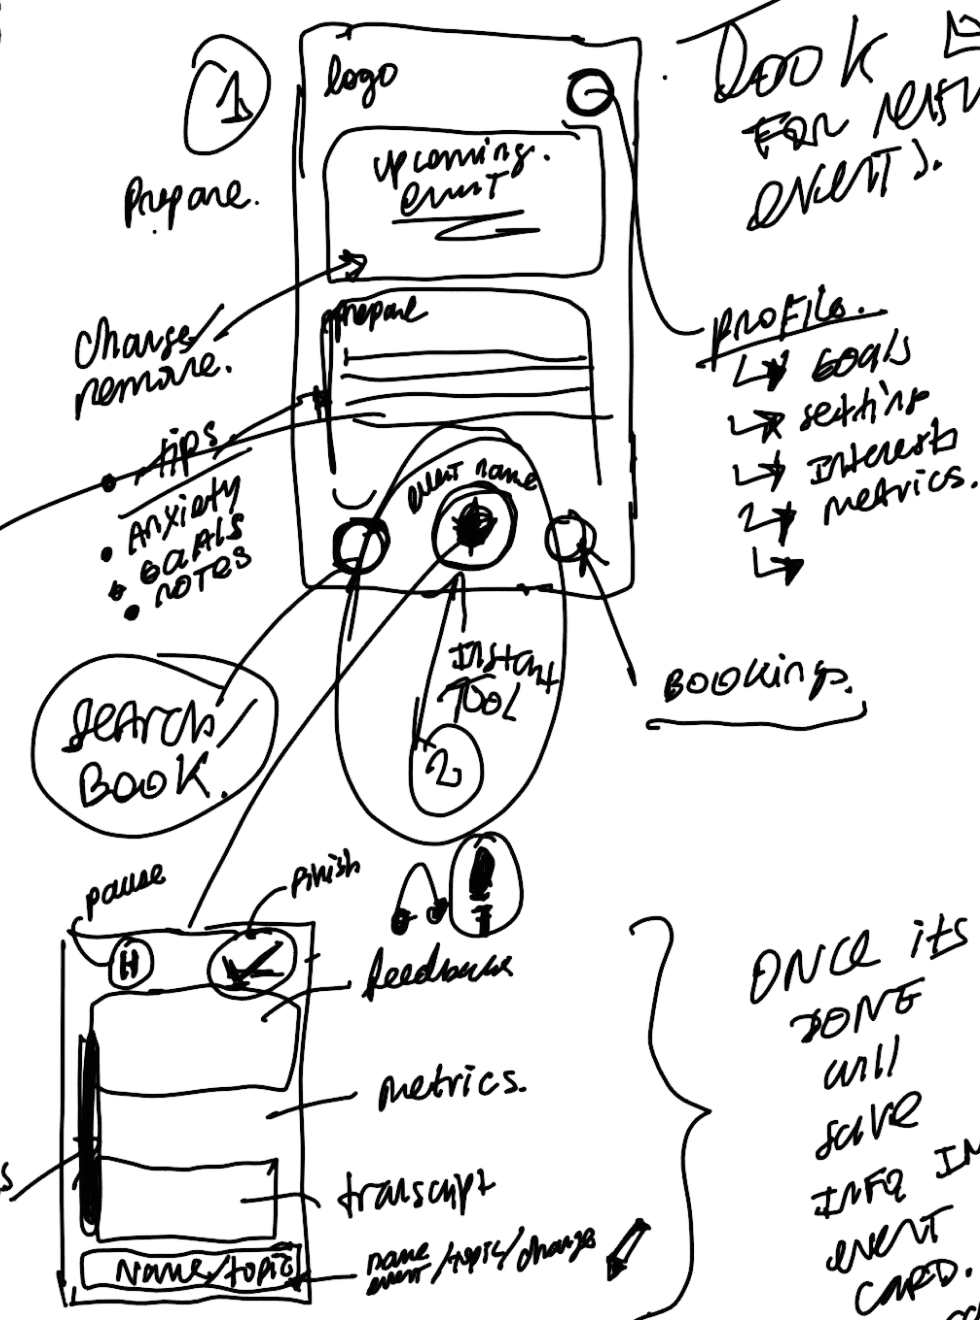 1
Prepare.
logo
upcoming.
event
Change/
remove.
prepare
tips
Anxiety
GOALS
NOTES
event name
LOOK
FOR
EVENTS.
PROFILE.
GOALS
setting
Interests
metrics.
SEARCH
BOOK.
INSTANT
TOOL
2
BOOKings.
pause
Finish
feedback
metrics.
transcript
Name/topic
name
event/topic/change
ONCE its
DONE
will
save
INFO IN
event
CARD.